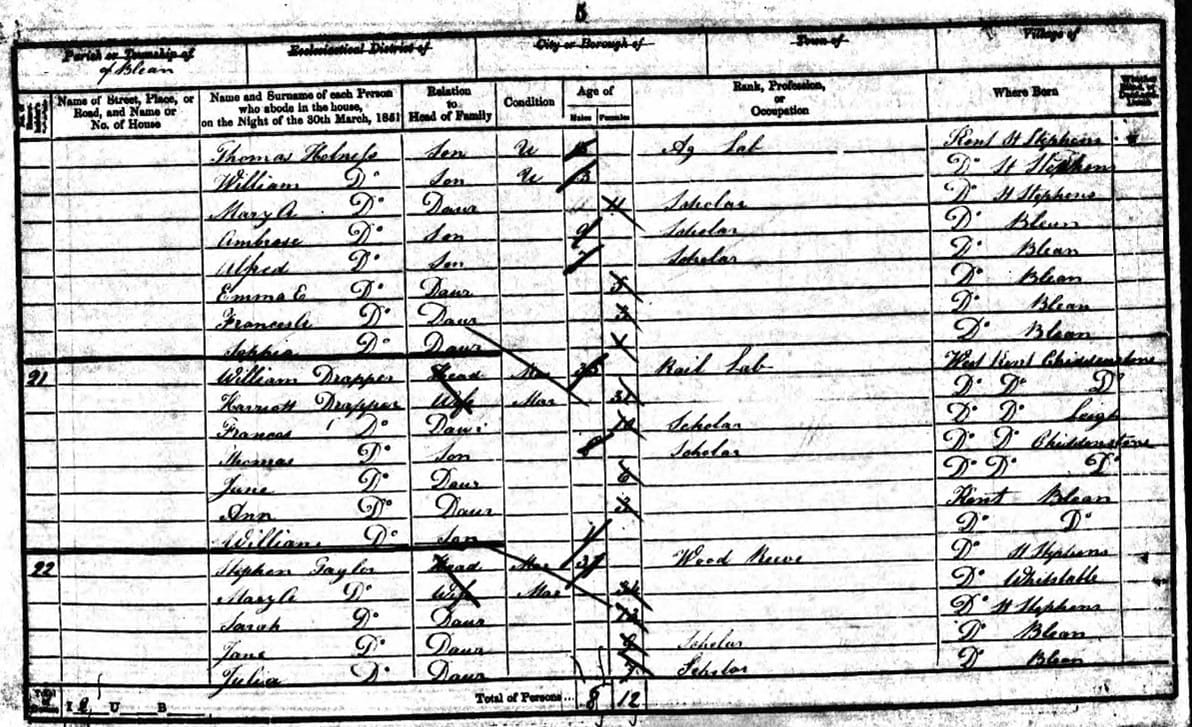 5
Parish or Township of Ecclesiastical District of City or Borough of Town of Village of
of Blean
Name of Street, Place, or Road, and Name or No. of House
Name and Surname of each Person who abode in the house, on the Night of the 30th March, 1851
Relation to Head of Family
Condition
Age of
Males Females
Rank, Profession, or Occupation
Where Born
Thomas Holness Son U Ag Lab Kent St Stephens
William Do Son U 13 Do St Stephens
Mary A Do Daur 11 Scholar Do St Stephens
Ambrose Do Son 9 Scholar Do Blean
Alfred Do Son 7 Scholar Do Blean
Emma E Do Daur Do Blean
Frances Do Daur 3 Do Blean
Sophia Do Daur Do Blean
21 William Drapper Head Mar 35 Rail Lab West Kent Chiddenstone
Harriott Drapper Wife Mar Do Do Do
Frances Do Daur Scholar Do Do Leigh
Thomas Do Son 8 Scholar Do Do Chiddenstone
Jane Do Daur 6 Do Do Do
Ann Do Daur 3 Kent Blean
William Do Son 1 Do Do
22 Stephen Taylor Head Mar 37 Wood Reeve Do St Stephens
Mary A Do Wife Mar Do Whitstable
Sarah Do Daur Do St Stephens
Jane Do Daur Scholar Do Blean
Julia Do Daur 7 Scholar Do Blean
I 2 U B Total of Persons... 8 12